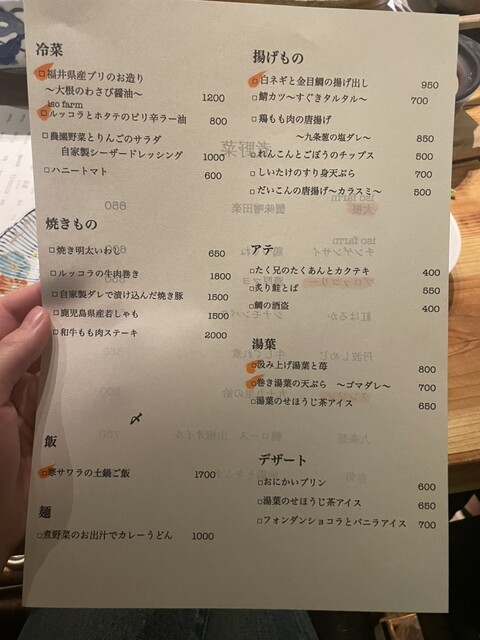 冷菜
□福井県産ブリのお造り
～大根のわさび醤油～ 1200
iso farm
□ルッコラとホタテのピリ辛ラー油 800
□農園野菜とりんごのサラダ
自家製シーザードレッシング 1000
□ハニートマト 600
焼きもの
□焼き明太いわし 650
□ルッコラの牛肉巻き 1800
□自家製ダレで漬け込んだ焼き豚 1500
□鹿児島県産若しゃも 1500
□和牛もも肉ステーキ 2000
〆
飯
□寒サワラの土鍋ご飯 1700
麺
□煮野菜のお出汁でカレーうどん 1000
揚げもの
□白ネギと金目鯛の揚げ出し 950
□鯖カツ～すぐきタルタル～ 700
□鶏もも肉の唐揚げ
～九条葱の塩ダレ～ 850
□れんこんとごぼうのチップス 500
□しいたけのすり身天ぷら 700
□だいこんの唐揚げ～カラスミ～ 500
アテ
□たく兄のたくあんとカクテキ 400
□炙り鮭とば 550
□鯛の酒盗 400
湯葉
□汲み上げ湯葉と苺 800
□巻き湯葉の天ぷら ～ゴマダレ～ 700
□湯葉のせほうじ茶アイス 650
デザート
□おにかいプリン 600
□湯葉のせほうじ茶アイス 650
□フォンダンショコラとバニラアイス 700